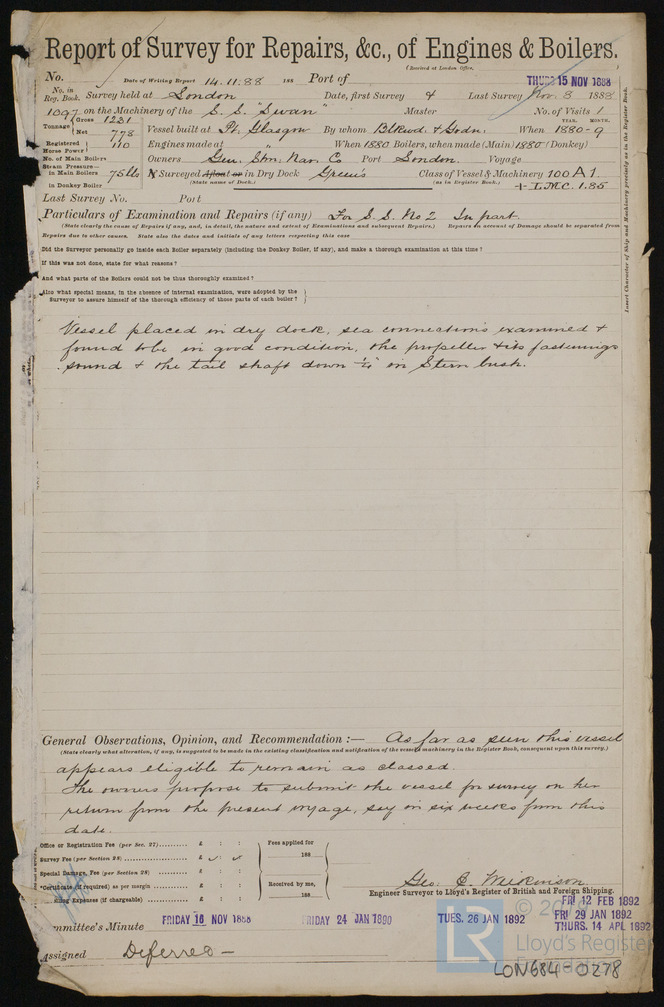 Report of Survey for Repairs, &c., of Engines & Boilers.
(Received at London Office,
No. Date of Writing Report 14.11.88 188 Port of THURS 15 NOV 1888
No. in Reg. Book. Survey held at London Date, first Survey & Last Survey Nov. 8 1888
1097 on the Machinery of the S. S. "Swan" Master No. of Visits 1
Tonnage Gross 1231 Net 778 Vessel built at Pt. Glasgow By whom Blkwd. & Gordn. When YEAR. MONTH. 1880-9
Registered Horse Power 110 Engines made at " When 1880 Boilers, when made (Main) 1880 (Donkey)
No. of Main Boilers Owners Gen. Stm. Nav. Co Port London. Voyage
Steam Pressure— in Main Boilers 75 lbs Surveyed Afloat or in Dry Dock Green's Class of Vessel & Machinery 100 A 1.
in Donkey Boiler (State name of Dock.) (as in Register Book.) + L.M.C. 1.85
Last Survey No. Port
Particulars of Examination and Repairs (if any) For S. S. No 2 In part.
(State clearly the cause of Repairs if any, and, in detail, the nature and extent of Examinations and subsequent Repairs.) Repairs on account of Damage should be separated from
Repairs due to other causes. State also the dates and initials of any letters respecting this case
Did the Surveyor personally go inside each Boiler separately (including the Donkey Boiler, if any), and make a thorough examination at this time?
If this was not done, state for what reasons?
And what parts of the Boilers could not be thus thoroughly examined?
Also what special means, in the absence of internal examination, were adopted by the
Surveyor to assure himself of the thorough efficiency of those parts of each boiler?
Insert Character of Ship and Machinery precisely as in the Register Book.
Vessel placed in dry dock, sea connections examined &
found to be in good condition, the propeller & its fastenings
sound & the tail shaft down 1/4" in Stern bush.
General Observations, Opinion, and Recommendation:— As far as seen this vessel
(State clearly what alteration, if any, is suggested to be made in the existing classification and notification of the vessel's machinery in the Register Book, consequent upon this survey.)
appears eligible to remain as classed.
The owners propose to submit the vessel for survey on her
return from the present voyage, say in six weeks from this
date.
Office or Registration Fee (per Sec. 27) £ : : Fees applied for
Survey Fee (per Section 28) £ : : 188
Special Damage, Fee (per Section 28) £ : :
*Certificate (if required) as per margin £ : : Received by me,
Travelling Expenses (if chargeable) £ : : 188
Geo. C. Wilkinson
Engineer Surveyor to Lloyd's Register of British and Foreign Shipping.
FRI 12 FEB 1892
FRI 29 JAN 1892
Committee's Minute FRIDAY 16 NOV 1888 FRIDAY 24 JAN 1890 TUES. 26 JAN 1892 THURS. 14 APL 1892
Assigned Deferred —
Lloyd's Register
Foundation
LR
LON684-0278